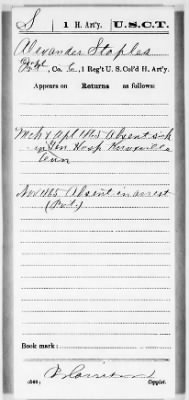 S 1 H. Art'y. U.S.C.T.
Alexander Staples
, Co. C, 1 Reg't U. S. Col'd H. Art'y.
Appears on Returns as follows:
Mch & Apl 1865 Absent sick
in Gen Hosp Knoxville
Tenn
Nov 1865 Absent in arrest
(Pvt.)
Book mark:
(546) Copyist.